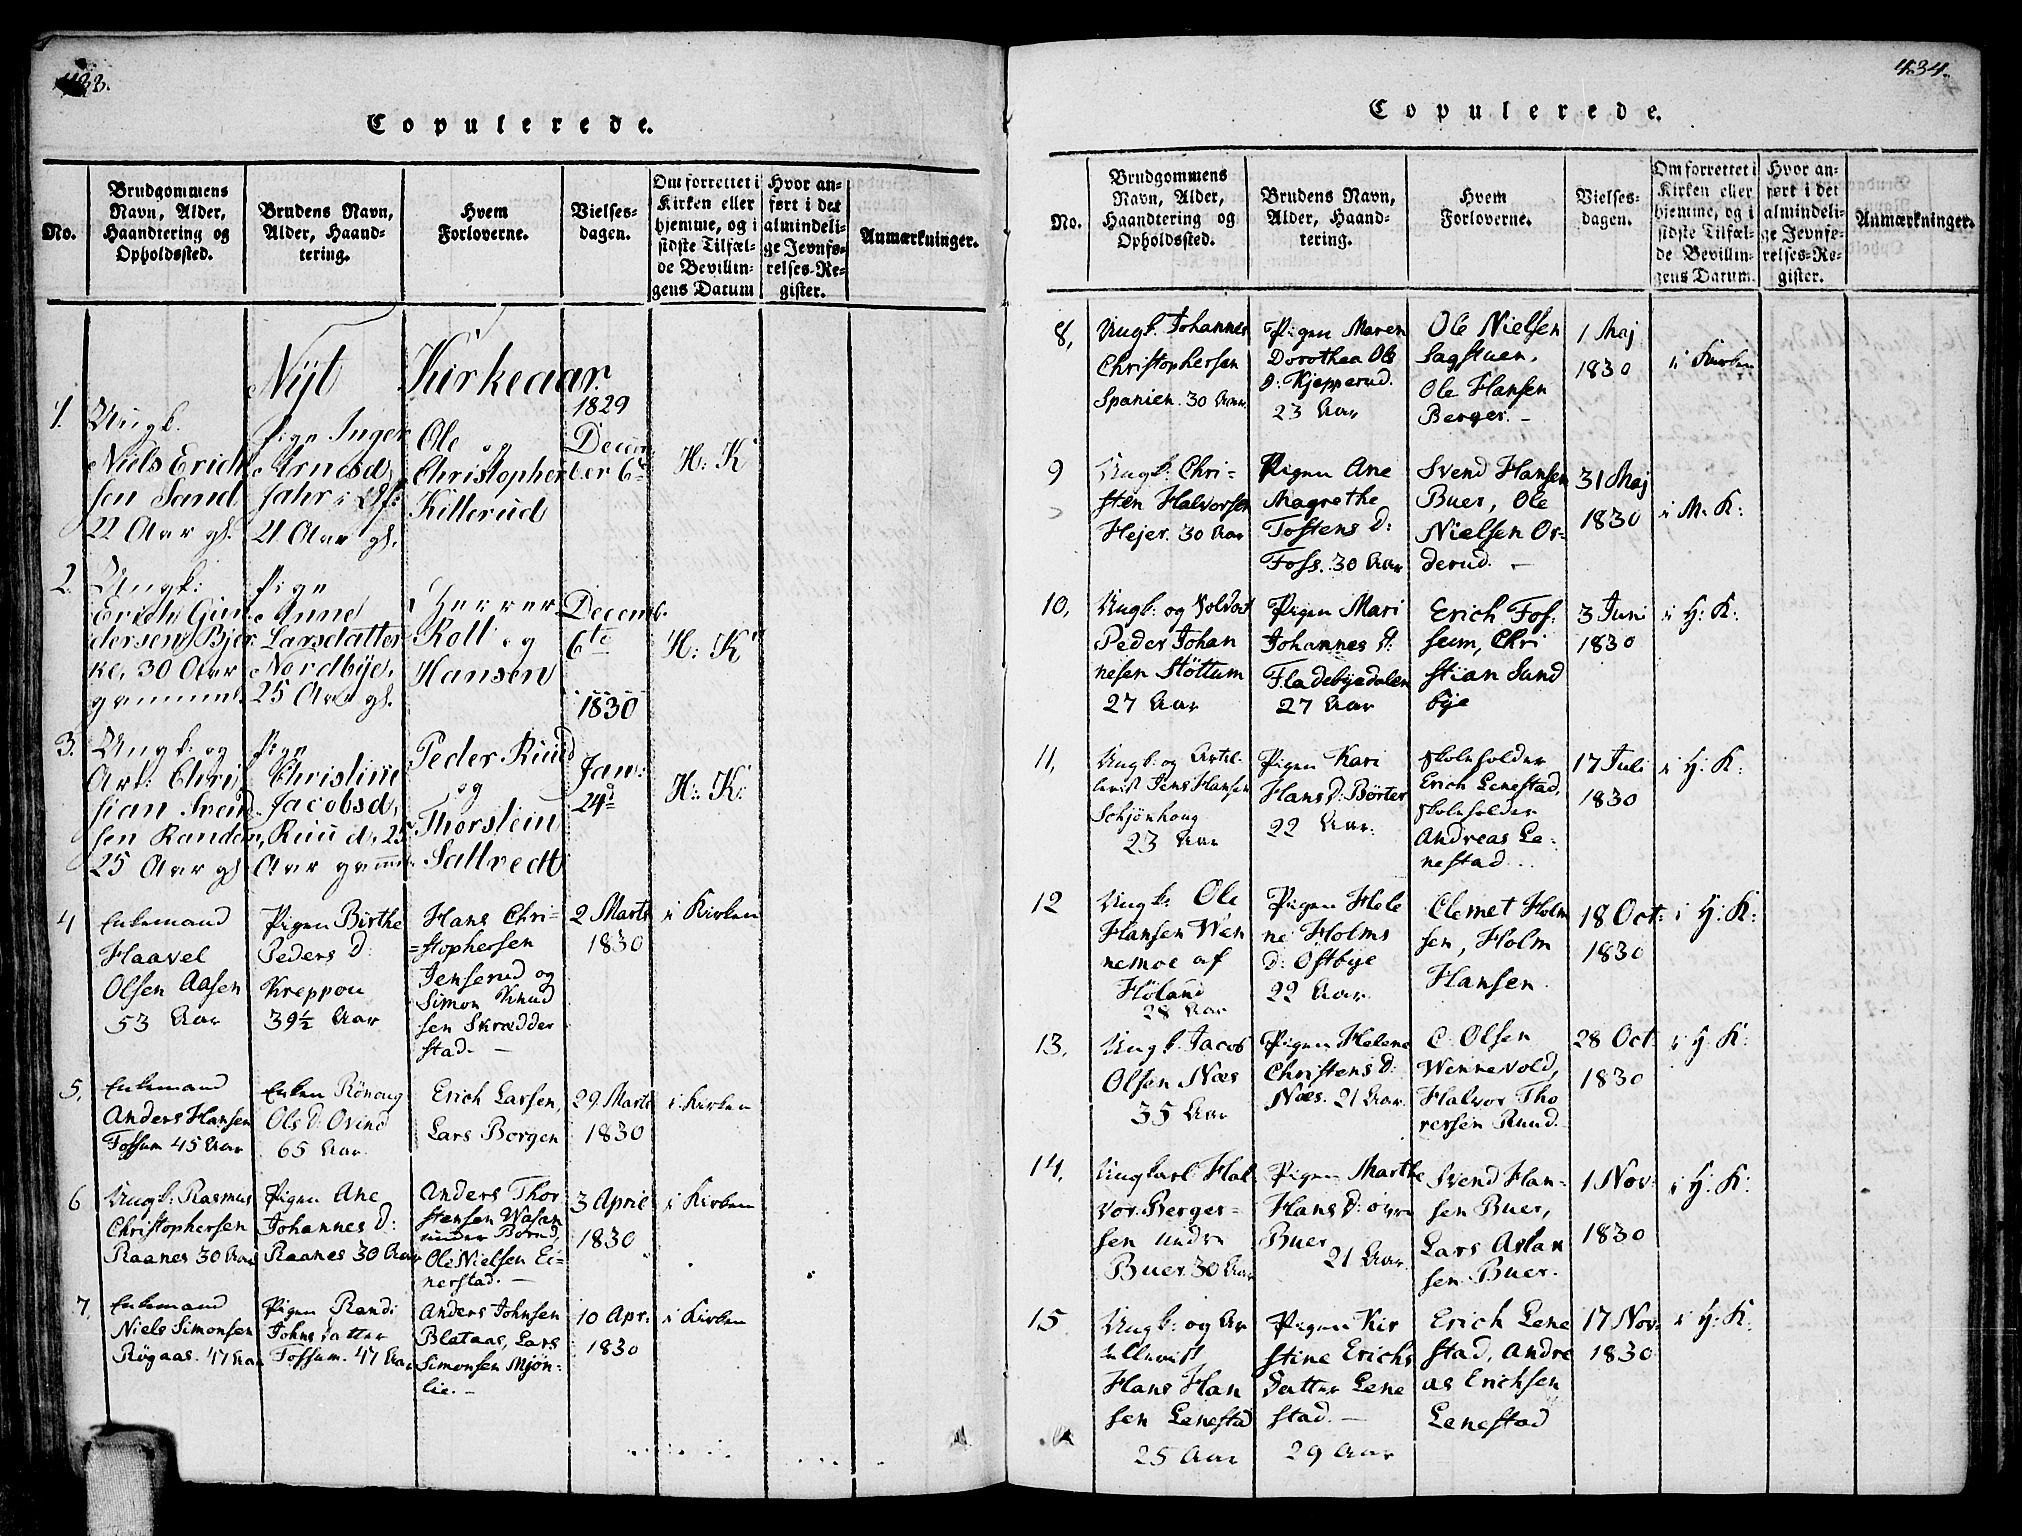 433.
Copulerede.
No.
Brudgommens
Navn, Alder,
Haandtiering og
Opholdssted.
Brudens Navn,
Alder, Haand-
tering.
Hvem
Forloverne.
Vielses-
dagen.
Om forrettet i
Kirken eller
hjemme, og i
sidste Tilfæl-
de Bevillin-
gens Datum
Hvor an-
ført i det
almindeli-
ge Jevnfø-
relses-Re-
gister.
Anmærkninger.
Nyt Kirkeaar.
1.
Ungk.
Niels Erich
sen Sand
22 Aar gl.
Pige Inger
Arnesd.
22 Aar gl.
Ole og
Christopher
Killerud
1829
Decem
ber 6te
H: K
2.
Ungk:
Erich Gun
dersen Bjer
ke, 30 Aar
gammel.
Pige
Anne
Larsdatter
Nordbye,
25 Aar gl.
Herrer
Roll og
Hansen
Decemb.
6te
H: K
3.
Ungk: og
Art: Chri
stian Svend
sen Randem,
25 Aar gl.
Pige
Christine
Jacobsd,
Ruud, 25
Aar gammel.
Peder Ruud
og
Thorstein
Sallvedt
1830
Jan:
24d
H: K:
4
Enkemand
Haavel
Olsen Aasen
53 Aar
Pigen Birthe
Peders D:
Kreppen
39½ Aar
Hans Chri-
=stophersen
Jenserud og
Simon Knud
sen Skrædder
stad. -
2 Marts
1830
i Kirken
5,
Enkemand
Anders Hansen
Fossum 45 Aar
Enken Rönoug
Ols D: Osind
65 Aar.
Erich Larsen,
Lars Borgen
29 Marts
1830
i Kirken
6
Ungk: Rasmus
Christophersen
Raanes 30 Aar
Pigen Ane
Johannes D:
Raanes 30 Aar
Anders Thor
stensen Wasan
under Borud,
Ole Nielsen Ei-
nerstad. -
3 April
1830
i Kirken
7,
Enkemand
Niels Simonsen
Røgaas. 47 Aar
Pigen Randi
Johns datter
Fossum. 47 Aar
Anders Johnsen
Blataas, Lars
Simonsen Mjøn-
lie. -
10 Apr:
1830
i Kirken
434.
Copulerede.
No.
Brudgommens
Navn, Alder,
Haandtering og
Opholdssted.
Brudens Navn,
Alder, Haand-
tering.
Hvem
Forloverne.
Vielses-
dagen.
Om forrettet i
Kirken eller
hjemme, og i
sidste Tilfæl-
de Bevillin-
gens Datum.
Hvor an-
ført i det
almindeli-
ge Jevnfø-
relses-Re-
gister.
Anmærkninger.
8,
Ungk: Johannes
Christophersen
Spanien. 30 Aar
Pigen Maren
Dorothea Ols
D: Kjepperud.
23 Aar
Ole Nielsen
Sagstuen,
Ole Hansen
Berger. -
1 Maj
1830
i Kirken
9
Ungk: Chri-
sten Halvorsen
Hejer. 30 Aar
Pigen Ane
Magrethe
Tostens D:
Foss. 30 Aar
Svend Hansen
Buer, Ole
Nielsen Or-
derud. -
31 Maj
1830
i M: K:
10,
Ungk: og Soldat
Peder Johan
nesen Støttum
27 Aar
Pigen Mari
Johannes D:
Fladebyedalen
27 Aar
Erich Fos-
sum, Chri
stian Sund
bye
3 Juni
1830
i H: K:
11,
Ungk: og Artil-
lerist Jens Hansen
Schjønhoug
23 Aar
Pigen Kari
Hans D: Børter
22 Aar.
Skoleholder
Erich Lenestad,
Skoleholder
Andreas Le-
nestad. -
17 Juli
1830
i H: K:
12
Ungk: Ole
Hansen Wen
nemoe af
Høland
28 Aar
Pigen Hele
ne Holms
D: Østbye
22 Aar.
Clemet Holm
sen, Holm
Hansen.
18 Oct:
1830
i H: K:
13,
Ungk: Jacob
Olsen Næs
35 Aar
Pigen Helene
Christens D:
Næs. 21 Aar.
C: Olsen
Wennevold,
Halvor Tho
resen Ruud.
28 Oct:
1830
i H: K:
14,
Ungkarl Hal
vor Berger-
sen nedre
Buer 30 Aar
Pigen Marthe
Hans D: øvre
Buer
21 Aar.
Svend Han-
sen Buer,
Lars Aslan
sen Buer.
1 Nov:
1830
i H: K:
15
Ungk: og Ar
tillerist
Hans Han
sen Lenestad
25 Aar
Pigen Kir
stine Erichs
datter Lene
stad. -
29 Aar
Erich Lene
stad, Andre
as Erichsen
Lenestad
17 Nov:
1830
i H: K: